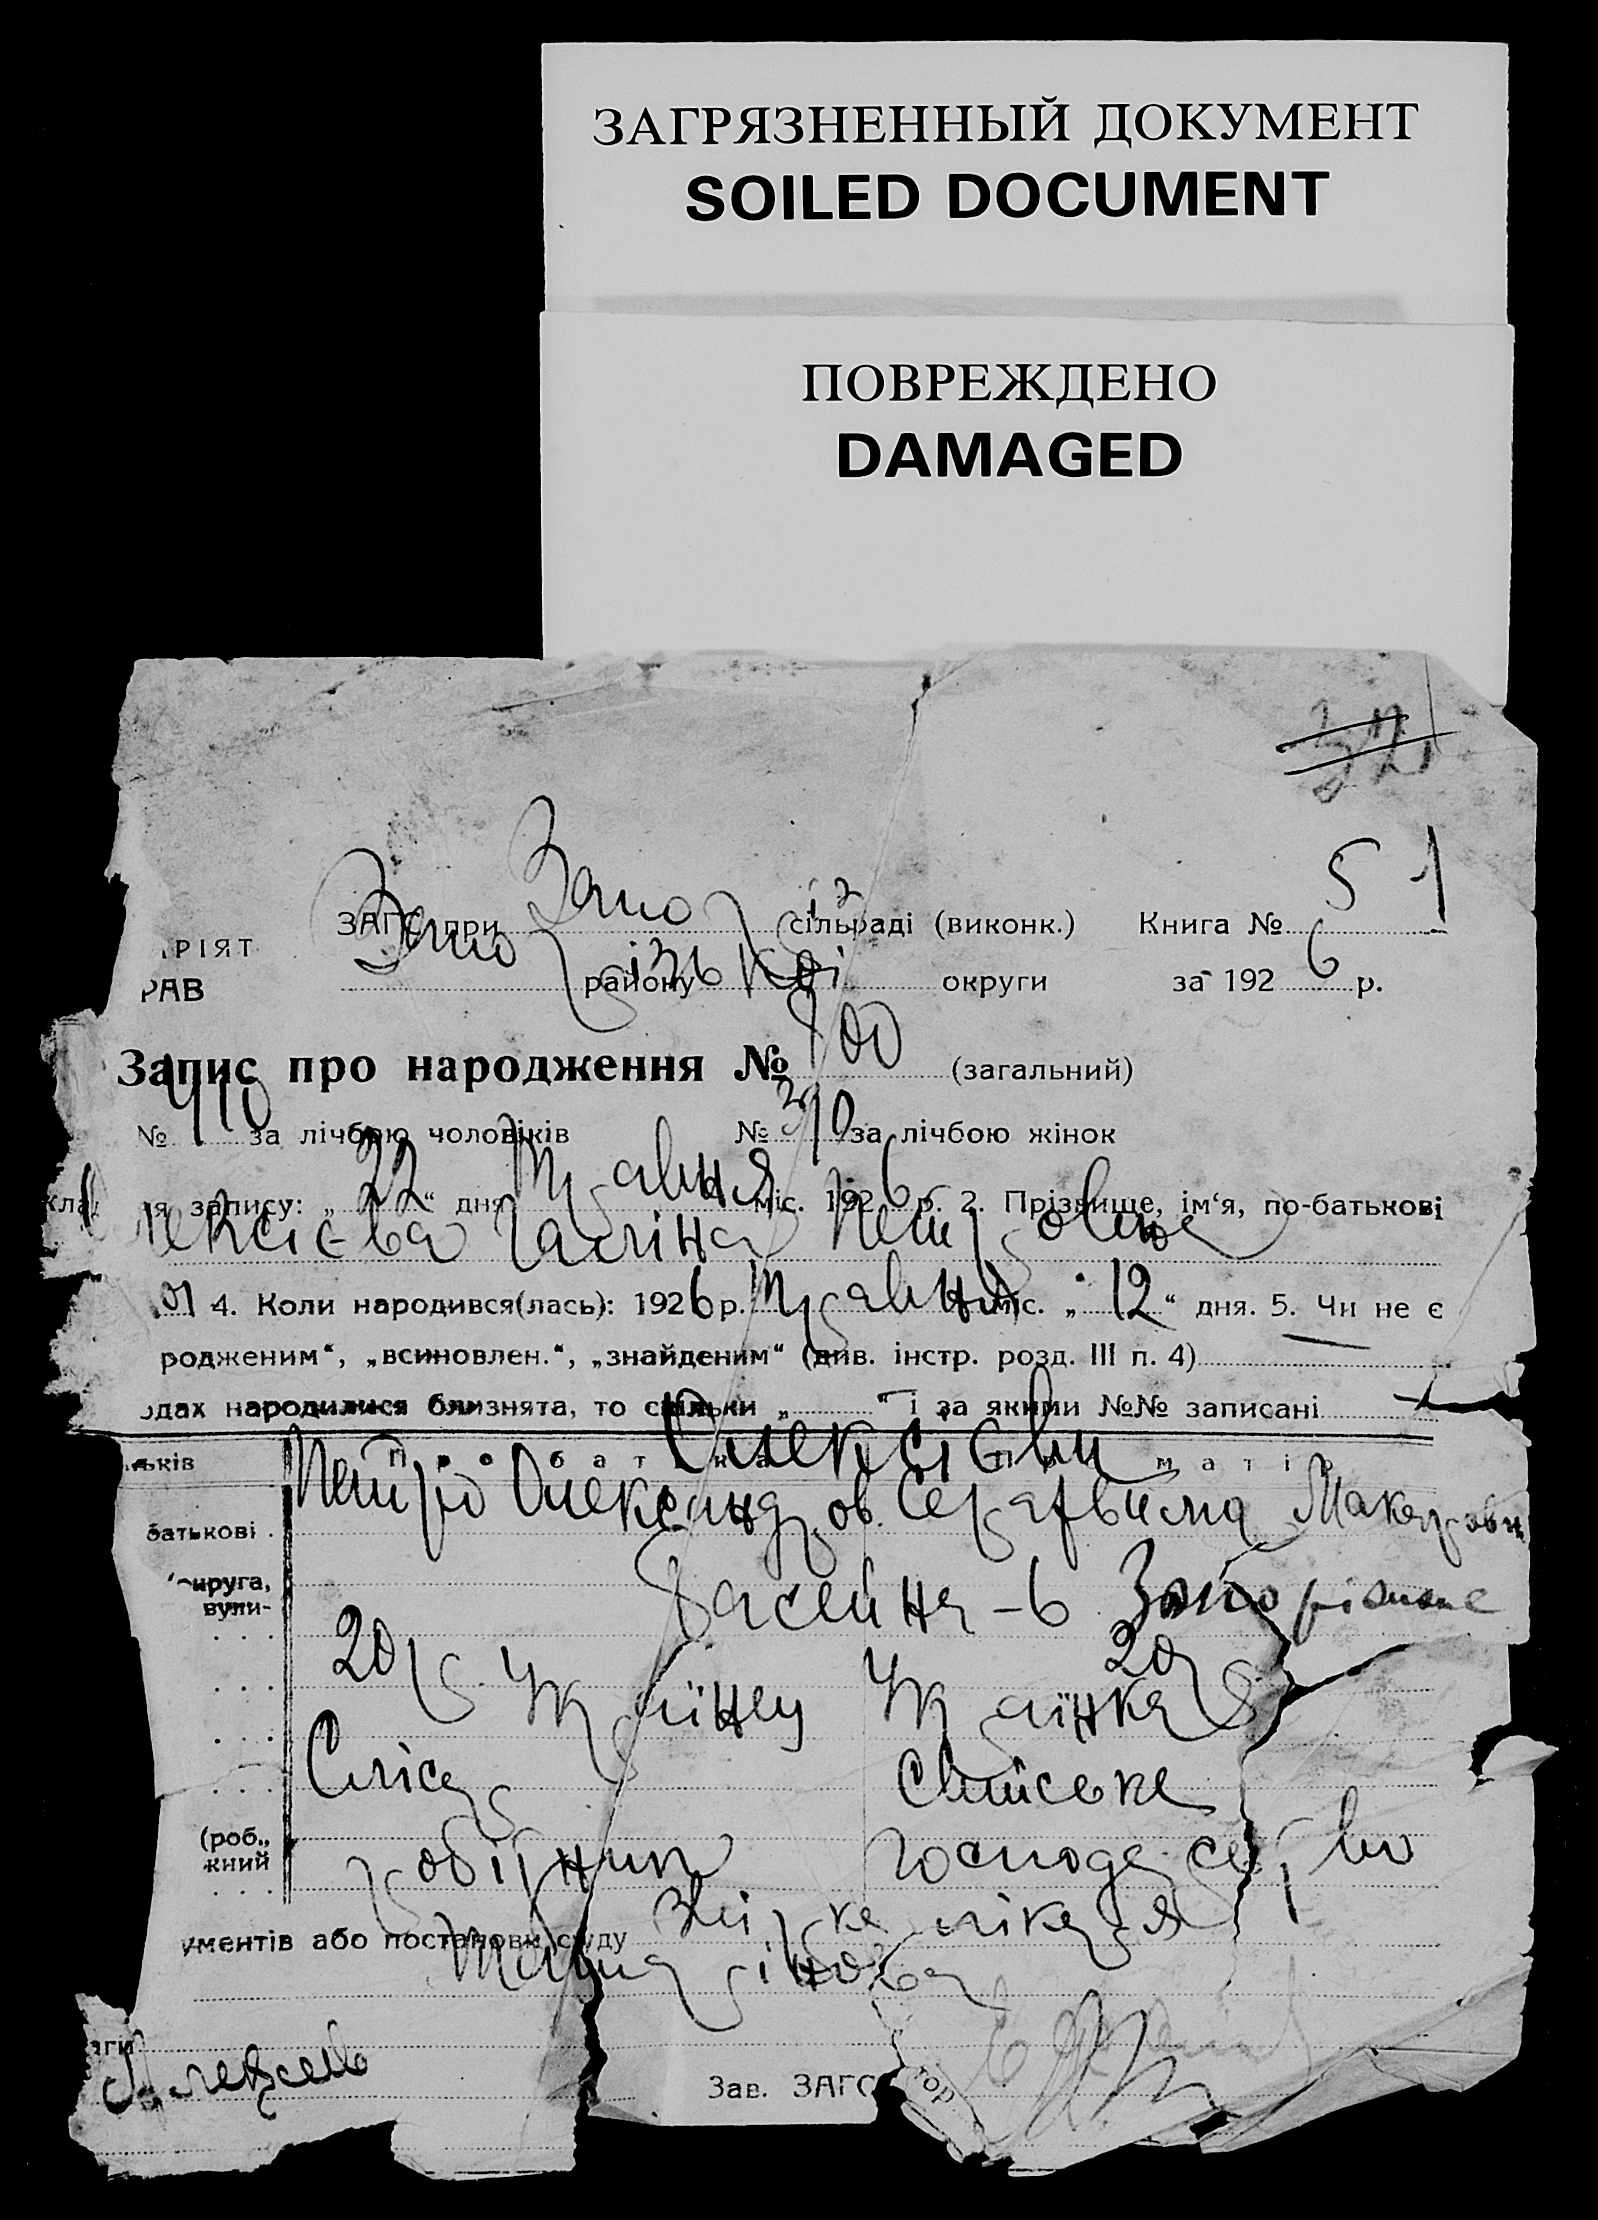 ЗАГРЯЗНЕННЫЙ ДОКУМЕНТ
SOILED DOCUMENT
ПОВРЕЖДЕНО
DAMAGED
32
ЗАГС при Запоріз сільраді (виконк.) Книга № 51
РІЯТ
РАВ Запорізької району округи за 1926 р.
Запис про народження № 800 (загальний)
№ 410 за лічбою чоловіків № 390 за лічбою жінок
я запису: „22“ дня Травня міс. 1926 р. 2. Прізвище, ім‘я, по-батькові
лексієва Галіна Петровна
4. Коли народився(лась): 1926 р. Травня міс. „12“ дня. 5. Чи не є
родженим“, „всиновлен.“, „знайденим“ (див. інстр. розд. III п. 4)
дах народилися близнята, то скільки „ “ і за якими №№ записані
ьків Про батька Про матір
Олексієви
батькові Петро Олександров. Серафвима Макаровн
округа, вули- Басейна-6 Запоріжжє
20 р. 20 р.
Українец Українка
Слісар Сільське
(роб., жний робітник господарство
ументів або постанови суду Звірка лікаря
Алексеев
Зав. ЗАГС